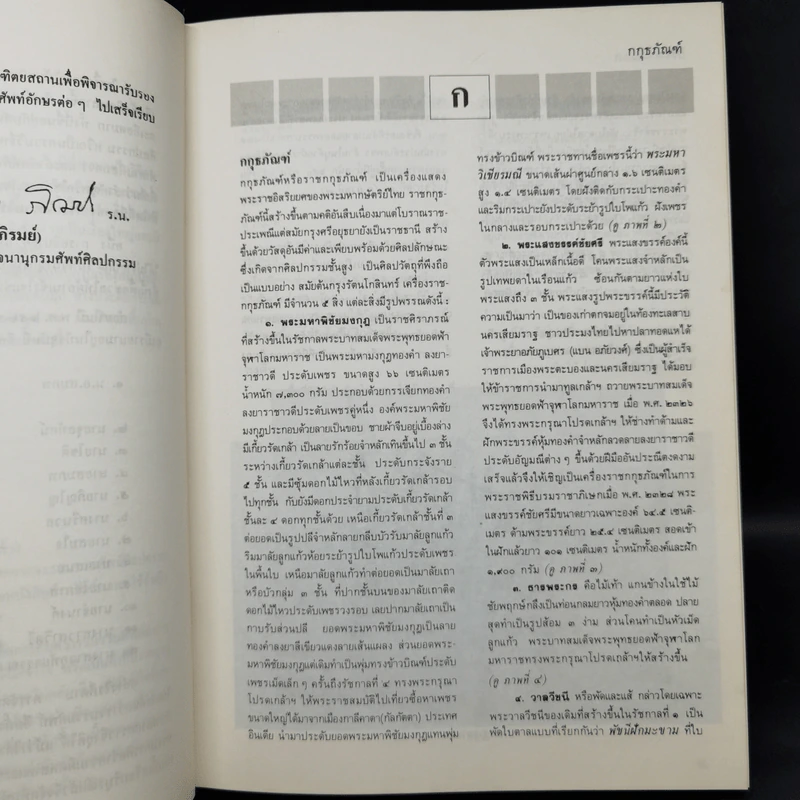 ฑิตยสถานเพื่อพิจารณารับรอง
ศัพท์อักษรต่อ ๆ ไปเสร็จเรียบ
ร.น.
ภิรมย์)
จนานุกรมศัพท์ศิลปกรรม
กกุธภัณฑ์
ก
กกุธภัณฑ์
กกุธภัณฑ์หรือราชกกุธภัณฑ์ เป็นเครื่องแสดง
พระราชอิสริยยศของพระมหากษัตริย์ไทย ราชกกุธ-
ภัณฑ์นี้สร้างขึ้นตามคติอันสืบเนื่องมาแต่โบราณราช-
ประเพณีแต่สมัยกรุงศรีอยุธยายังเป็นราชธานี สร้าง
ขึ้นด้วยวัสดุอันมีค่าและเพียบพร้อมด้วยศิลปลักษณะ
ซึ่งเกิดจากศิลปกรรมชั้นสูง เป็นศิลปวัตถุที่พึงถือ
เป็นแบบอย่าง สมัยต้นกรุงรัตนโกสินทร์ เครื่องราช-
กกุธภัณฑ์ มีจำนวน ๕ สิ่ง แต่ละสิ่งมีรูปพรรณดังนี้ :
๑. พระมหาพิชัยมงกุฎ เป็นราชศิราภรณ์
ที่สร้างขึ้นในรัชกาลพระบาทสมเด็จพระพุทธยอดฟ้า
จุฬาโลกมหาราช เป็นพระมหามงกุฎทองคำ ลงยา
ราชาวดี ประดับเพชร ขนาดสูง ๖๖ เซนติเมตร
น้ำหนัก ๗,๓๐๐ กรัม ประกอบด้วยกรรเจียกทองคำ
ลงยาราชาวดีประดับเพชรคู่หนึ่ง องค์พระมหาพิชัย
มงกุฎประกอบด้วยลายเป็นขอบ ชายผ้าจีบอยู่เบื้องล่าง
มีเกี้ยวรัดเกล้า เป็นลายรักร้อยจำหลักเทินขึ้นไป ๓ ชั้น
ระหว่างเกี้ยวรัดเกล้าแต่ละชั้น ประดับกระจังราย
๕ ชั้น และมีซุ้มดอกไม้ไหวที่หลังเกี้ยวรัดเกล้ารอบ
ไปทุกชั้น กับยังมีดอกประจำยามประดับเกี้ยวรัดเกล้า
ชั้นละ ๔ ดอกทุกชั้นด้วย เหนือเกี้ยวรัดเกล้าชั้นที่ ๓
ต่อยอดเป็นรูปปลีจำหลักลายกลีบบัวรับมาลัยลูกแก้ว
ริมมาลัยลูกแก้วห้อยระย้ารูปใบโพแก้วประดับเพชร
ในพื้นใบ เหนือมาลัยลูกแก้วทำต่อยอดเป็นมาลัยเถา
หรือบัวกลุ่ม ๓ ชั้น ที่ปากชั้นบนของมาลัยเถาติด
ดอกไม้ไหวประดับเพชรวงรอบ เลยปากมาลัยเถาเป็น
กาบรับส่วนปลี ยอดพระมหาพิชัยมงกุฎเป็นลาย
ทองคำลงยาสีเขียวแดงลายเส้นแผลง ส่วนยอดพระ-
มหาพิชัยมงกุฎแต่เดิมทำเป็นพุ่มทรงข้าวบิณฑ์ประดับ
เพชรเม็ดเล็ก ๆ ครั้นถึงรัชกาลที่ ๔ ทรงพระกรุณา
โปรดเกล้าฯ ให้พระราชสมบัติไปเที่ยวซื้อหาเพชร
ขนาดใหญ่ได้มาจากเมืองกาลีคาตา(กัลกัตตา) ประเทศ
อินเดีย นำมาประดับยอดพระมหาพิชัยมงกุฎแทนพุ่ม
ทรงข้าวบิณฑ์ พระราชทานชื่อเพชรนี้ว่า พระมหา
วิเชียรมณี ขนาดเส้นผ่าศูนย์กลาง ๑.๖ เซนติเมตร
สูง ๑.๔ เซนติเมตร โดยฝังติดกับกระเปาะทองคำ
และริมกระเปาะยังประดับระย้ารูปใบโพแก้ว ฝังเพชร
ในกลางและรอบกระเปาะด้วย (ดู ภาพที่ ๒)
๒. พระแสงขรรค์ชัยศรี พระแสงขรรค์องค์นี้
ตัวพระแสงเป็นเหล็กเนื้อดี โคนพระแสงจำหลักเป็น
รูปเทพยดาในเรือนแก้ว ซ้อนกันตามยาวแห่งใบ
พระแสงถึง ๓ ชั้น พระแสงรูปพระขรรค์นี้มีประวัติ
ความเป็นมาว่า เป็นของเก่าตกจมอยู่ในท้องทะเลสาบ
นครเสียมราฐ ชาวประมงไทยไปหาปลาทอดแหได้
เจ้าพระยาอภัยภูเบศร (แบน อภัยวงศ์) ซึ่งเป็นผู้สำเร็จ
ราชการเมืองพระตะบองและนครเสียมราฐ ได้มอบ
ให้ข้าราชการนำมาทูลเกล้าฯ ถวายพระบาทสมเด็จ
พระพุทธยอดฟ้าจุฬาโลกมหาราช เมื่อ พ.ศ. ๒๓๒๖
จึงได้ทรงพระกรุณาโปรดเกล้าฯ ให้ช่างทำด้ามและ
ฝักพระขรรค์หุ้มทองคำจำหลักลวดลายลงยาราชาวดี
ประดับอัญมณีต่าง ๆ ขึ้นด้วยฝีมืออันประณีตงดงาม
เสร็จแล้วจึงให้เชิญเป็นเครื่องราชกกุธภัณฑ์ในการ
พระราชพิธีบรมราชาภิเษกเมื่อ พ.ศ. ๒๓๒๘ พระ
แสงขรรค์ชัยศรีมีขนาดยาวเฉพาะองค์ ๖๔.๕ เซนติ-
เมตร ด้ามพระขรรค์ยาว ๒๕.๔ เซนติเมตร สอดเข้า
ในฝักแล้วยาว ๑๐๑ เซนติเมตร น้ำหนักทั้งองค์และฝัก
๑,๙๐๐ กรัม (ดู ภาพที่ ๓)
๓. ธารพระกร คือไม้เท้า แกนข้างในใช้ไม้
ชัยพฤกษ์กลึงเป็นท่อนกลมยาวหุ้มทองคำตลอด ปลาย
สุดทำเป็นรูปส้อม ๓ ง่าม ส่วนโคนทำเป็นหัวเม็ด
ลูกแก้ว พระบาทสมเด็จพระพุทธยอดฟ้าจุฬาโลก
มหาราชทรงพระกรุณาโปรดเกล้าฯให้สร้างขึ้น
(ดู ภาพที่ ๔)
๔. วาลวิชนี หรือพัดและแส้ กล่าวโดยเฉพาะ
พระวาลวิชนีของเดิมที่สร้างขึ้นในรัชกาลที่ ๑ เป็น
พัดใบตาลแบบที่เรียกกันว่า พัชนีฝักมะขาม ที่ใบ